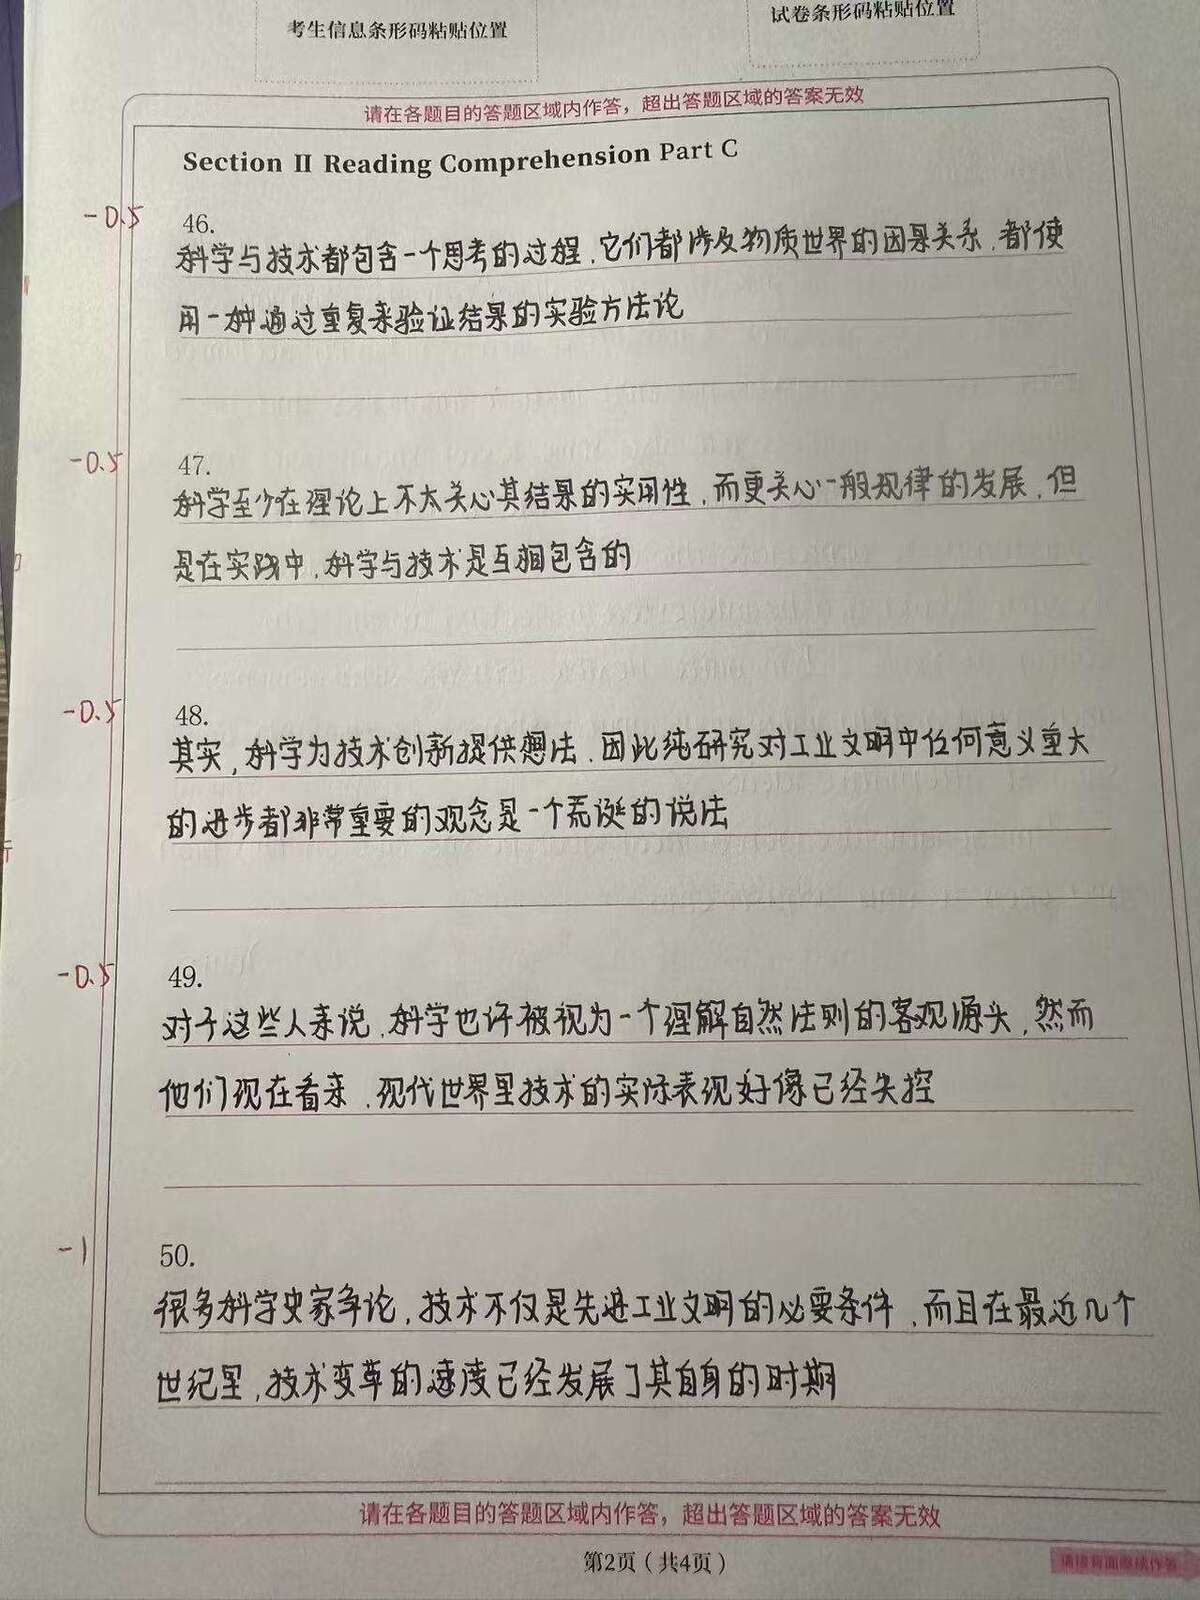 考生信息条形码粘贴位置
试卷条形码粘贴位置
请在各题目的答题区域内作答，超出答题区域的答案无效
Section II Reading Comprehension Part C
-0.5
46.
科学与技术都包含一个思考的过程，它们都涉及物质世界的因果关系，都使
用一种通过重复来验证结果的实验方法论
-0.5
47.
科学至少在理论上不太关心其结果的实用性，而更关心一般规律的发展，但
是在实践中，科学与技术是互相包含的
-0.5
48.
其实，科学为技术创新提供想法，因此纯研究对工业文明中任何意义重大
的进步都非常重要的观念是一个荒诞的说法
-0.5
49.
对于这些人来说，科学也许被视为一个理解自然法则的客观源头，然而
他们现在看来，现代世界里技术的实际表现好像已经失控
-1
50.
很多科学史家争论，技术不仅是先进工业文明的必要条件，而且在最近几个
世纪里，技术变革的速度已经发展了其自身的时期
请在各题目的答题区域内作答，超出答题区域的答案无效
第2页（共4页）
请接背面继续作答